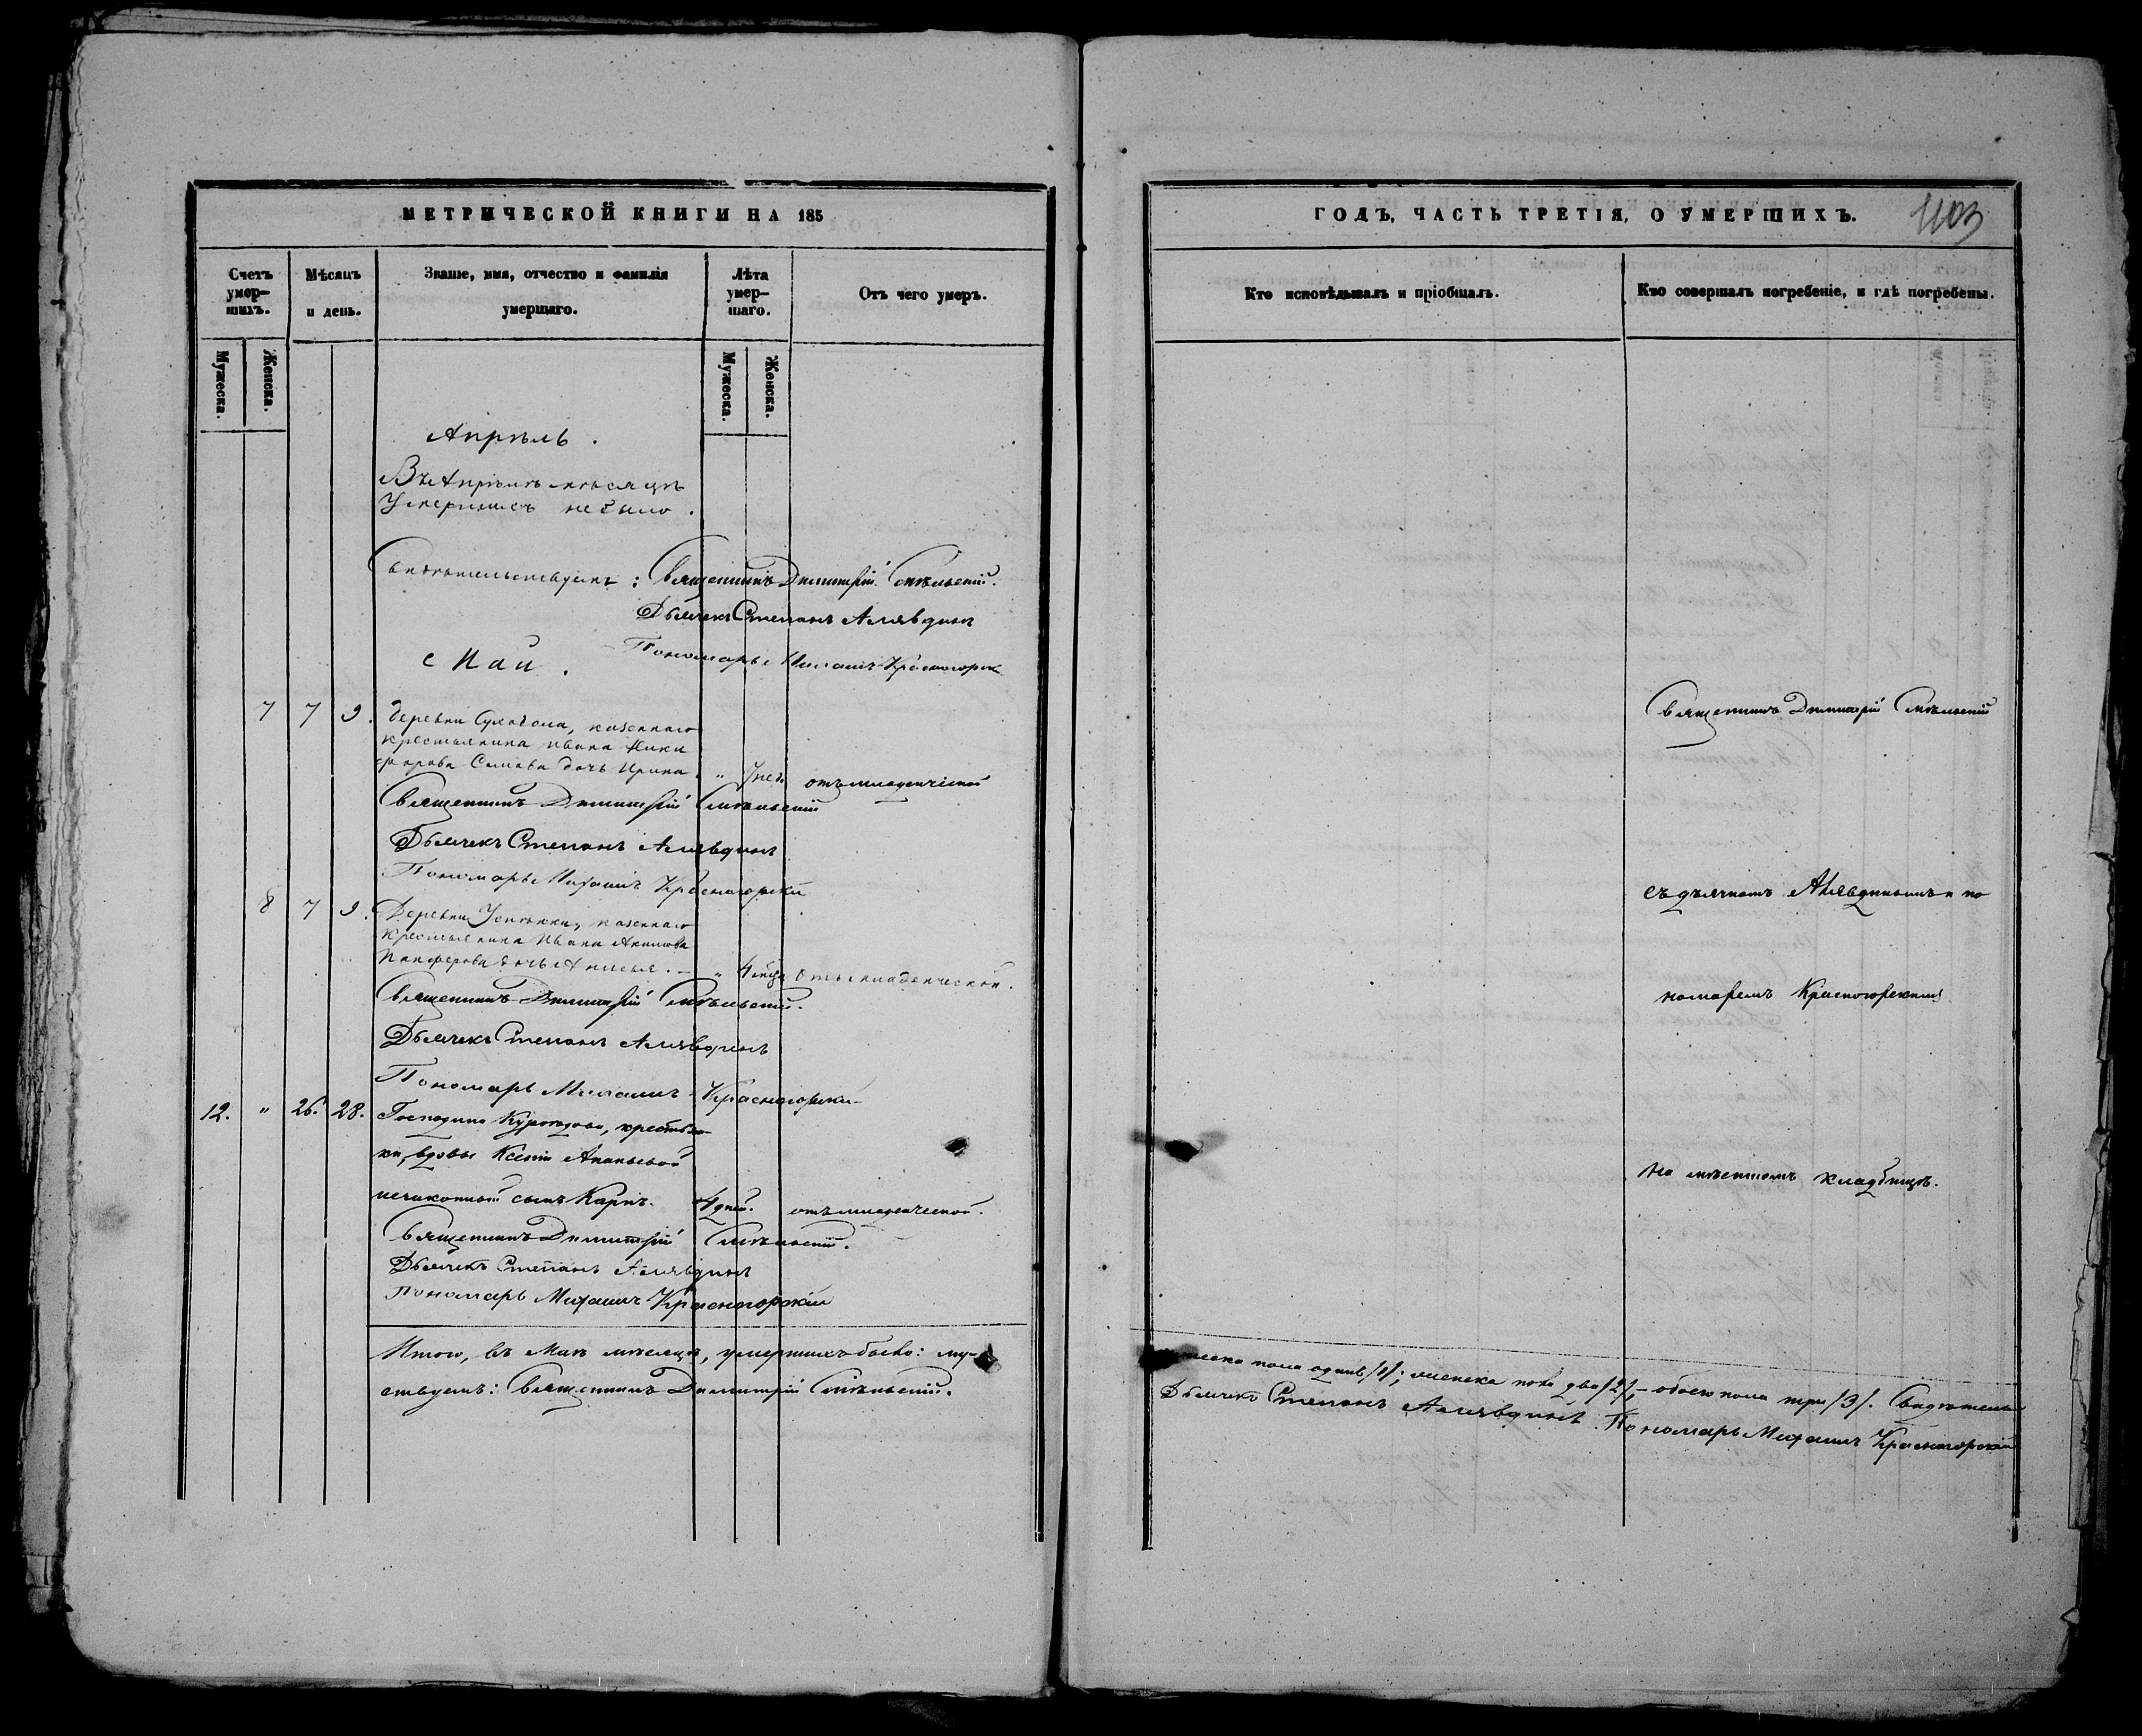 МЕТРИЧЕСКОЙ КНИГИ НА 185
Счетъ умер-шихъ.
Мѣсяцъ и день.
Званіе, имя, отчество и фамилія умершаго.
Лѣта умер-шаго.
Отъ чего умеръ.
Мужеска.
Женска.
Мужеска.
Женска.
Апрѣль.
Въ Апрѣлѣ мѣсяцѣ
Умершихъ небыло.
Свидѣтельствуемъ: Священникъ Димитрій
Дьячекъ Степанъ Алявдинъ
Май.
Пономарь Михаилъ Красногорск
7 7 9. деревни Суходола, казеннаго
крестьянина Ивана Ники
форова дочь Ирина. " 7 нед. отъ младенческой
Священникъ Димитрій
Дьячекъ Степанъ Алявдинъ
Пономарь Михаилъ Красногорскій
8 7 9. Деревни казеннаго
крестьянина Ивана Акимова
Панферова дочь Анисья. — " 4 мца отъ младенческой.
Священникъ Димитрій
Дьячекъ Степанъ Алявдинъ
Пономарь Михаилъ Красногорскій
12. " 26. 28. Господина Куроедова, крестьян-
ки, вдовы Ксеніи Ананьевой
незаконный сынъ Карпъ. 4 дней. отъ младенческой.
Священникъ Димитрій
Дьячекъ Степанъ Алявдинъ
Пономарь Михаилъ Красногорскій
Итого, въ Маѣ мѣсяцѣ, умершихъ было: му-
ствуемъ: Священникъ Димитрій
ГОДЪ, ЧАСТЬ ТРЕТІЯ, О УМЕРШИХЪ.
1103
Кто исповѣдывалъ и пріобщалъ.
Кто совершалъ погребеніе, и гдѣ погребены.
Священникъ Димитрій
съ дьячкомъ Алявдинымъ и по
номаремъ Красногорскимъ
На мѣстномъ кладбищѣ.
жеска пола одинъ /1/; женска пола два /2/, — обоего пола три /3/. Свидѣтель
Дьячекъ Степанъ Алявдинъ. Пономарь Михаилъ Красногорскій